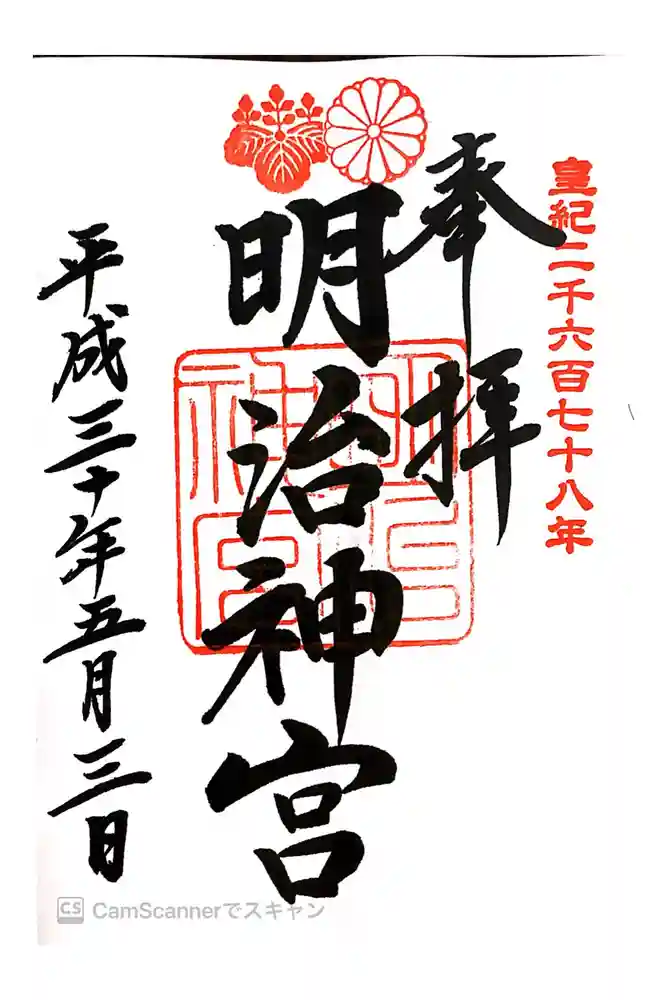 皇紀二千六百七十八年
奉拝
明治神宮
平成三十年五月三日
明治神宮
CS CamScannerでスキャン